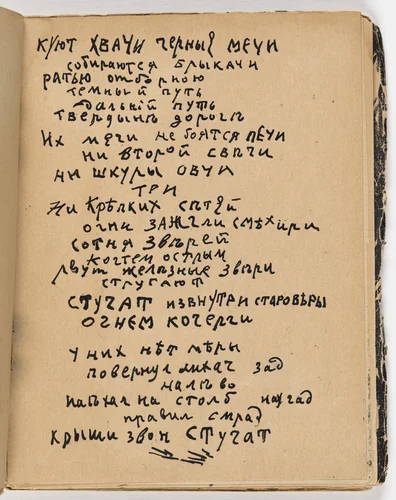 куют хвачи черные мечи
собираются брыкачи
ратью отборною
темный путь
дальнiй путь
твердынъ дорогъ
Их мечи не боятся печи
ни второй свѣчи
ни шкуры овчи
три
Ни крѣпких сѣтей
огни зажгли смѣхири
сотня звѣрей
когтем острым
рвут желѣзные звѣри
стругают
стучат извнутри старовѣры
огнем кочерги
у них нѣт мѣры
повернул лихач зад
налѣво
наѣхал на столб
правил смрад
крыши звон стучат